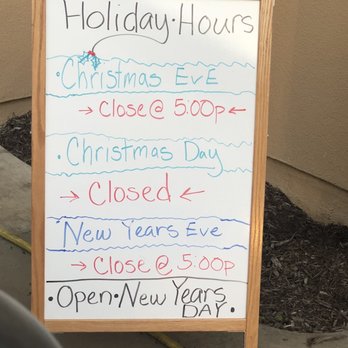 Holiday·Hours
·Christmas EvE
→ Close @ 5:00p ←
·Christmas Day
→ Closed ←
New Years Eve
→ Close @ 5:00p
·Open·New Years
DAY·